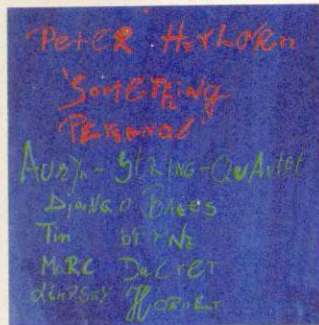 PeteR HeRboRn
'SOMETHiNG
PERSONAL'
AURYN-STRING-QUARTET
DJANGO BATES
Tim BERNE
MARC DUCRET
LINDSAY HORNER